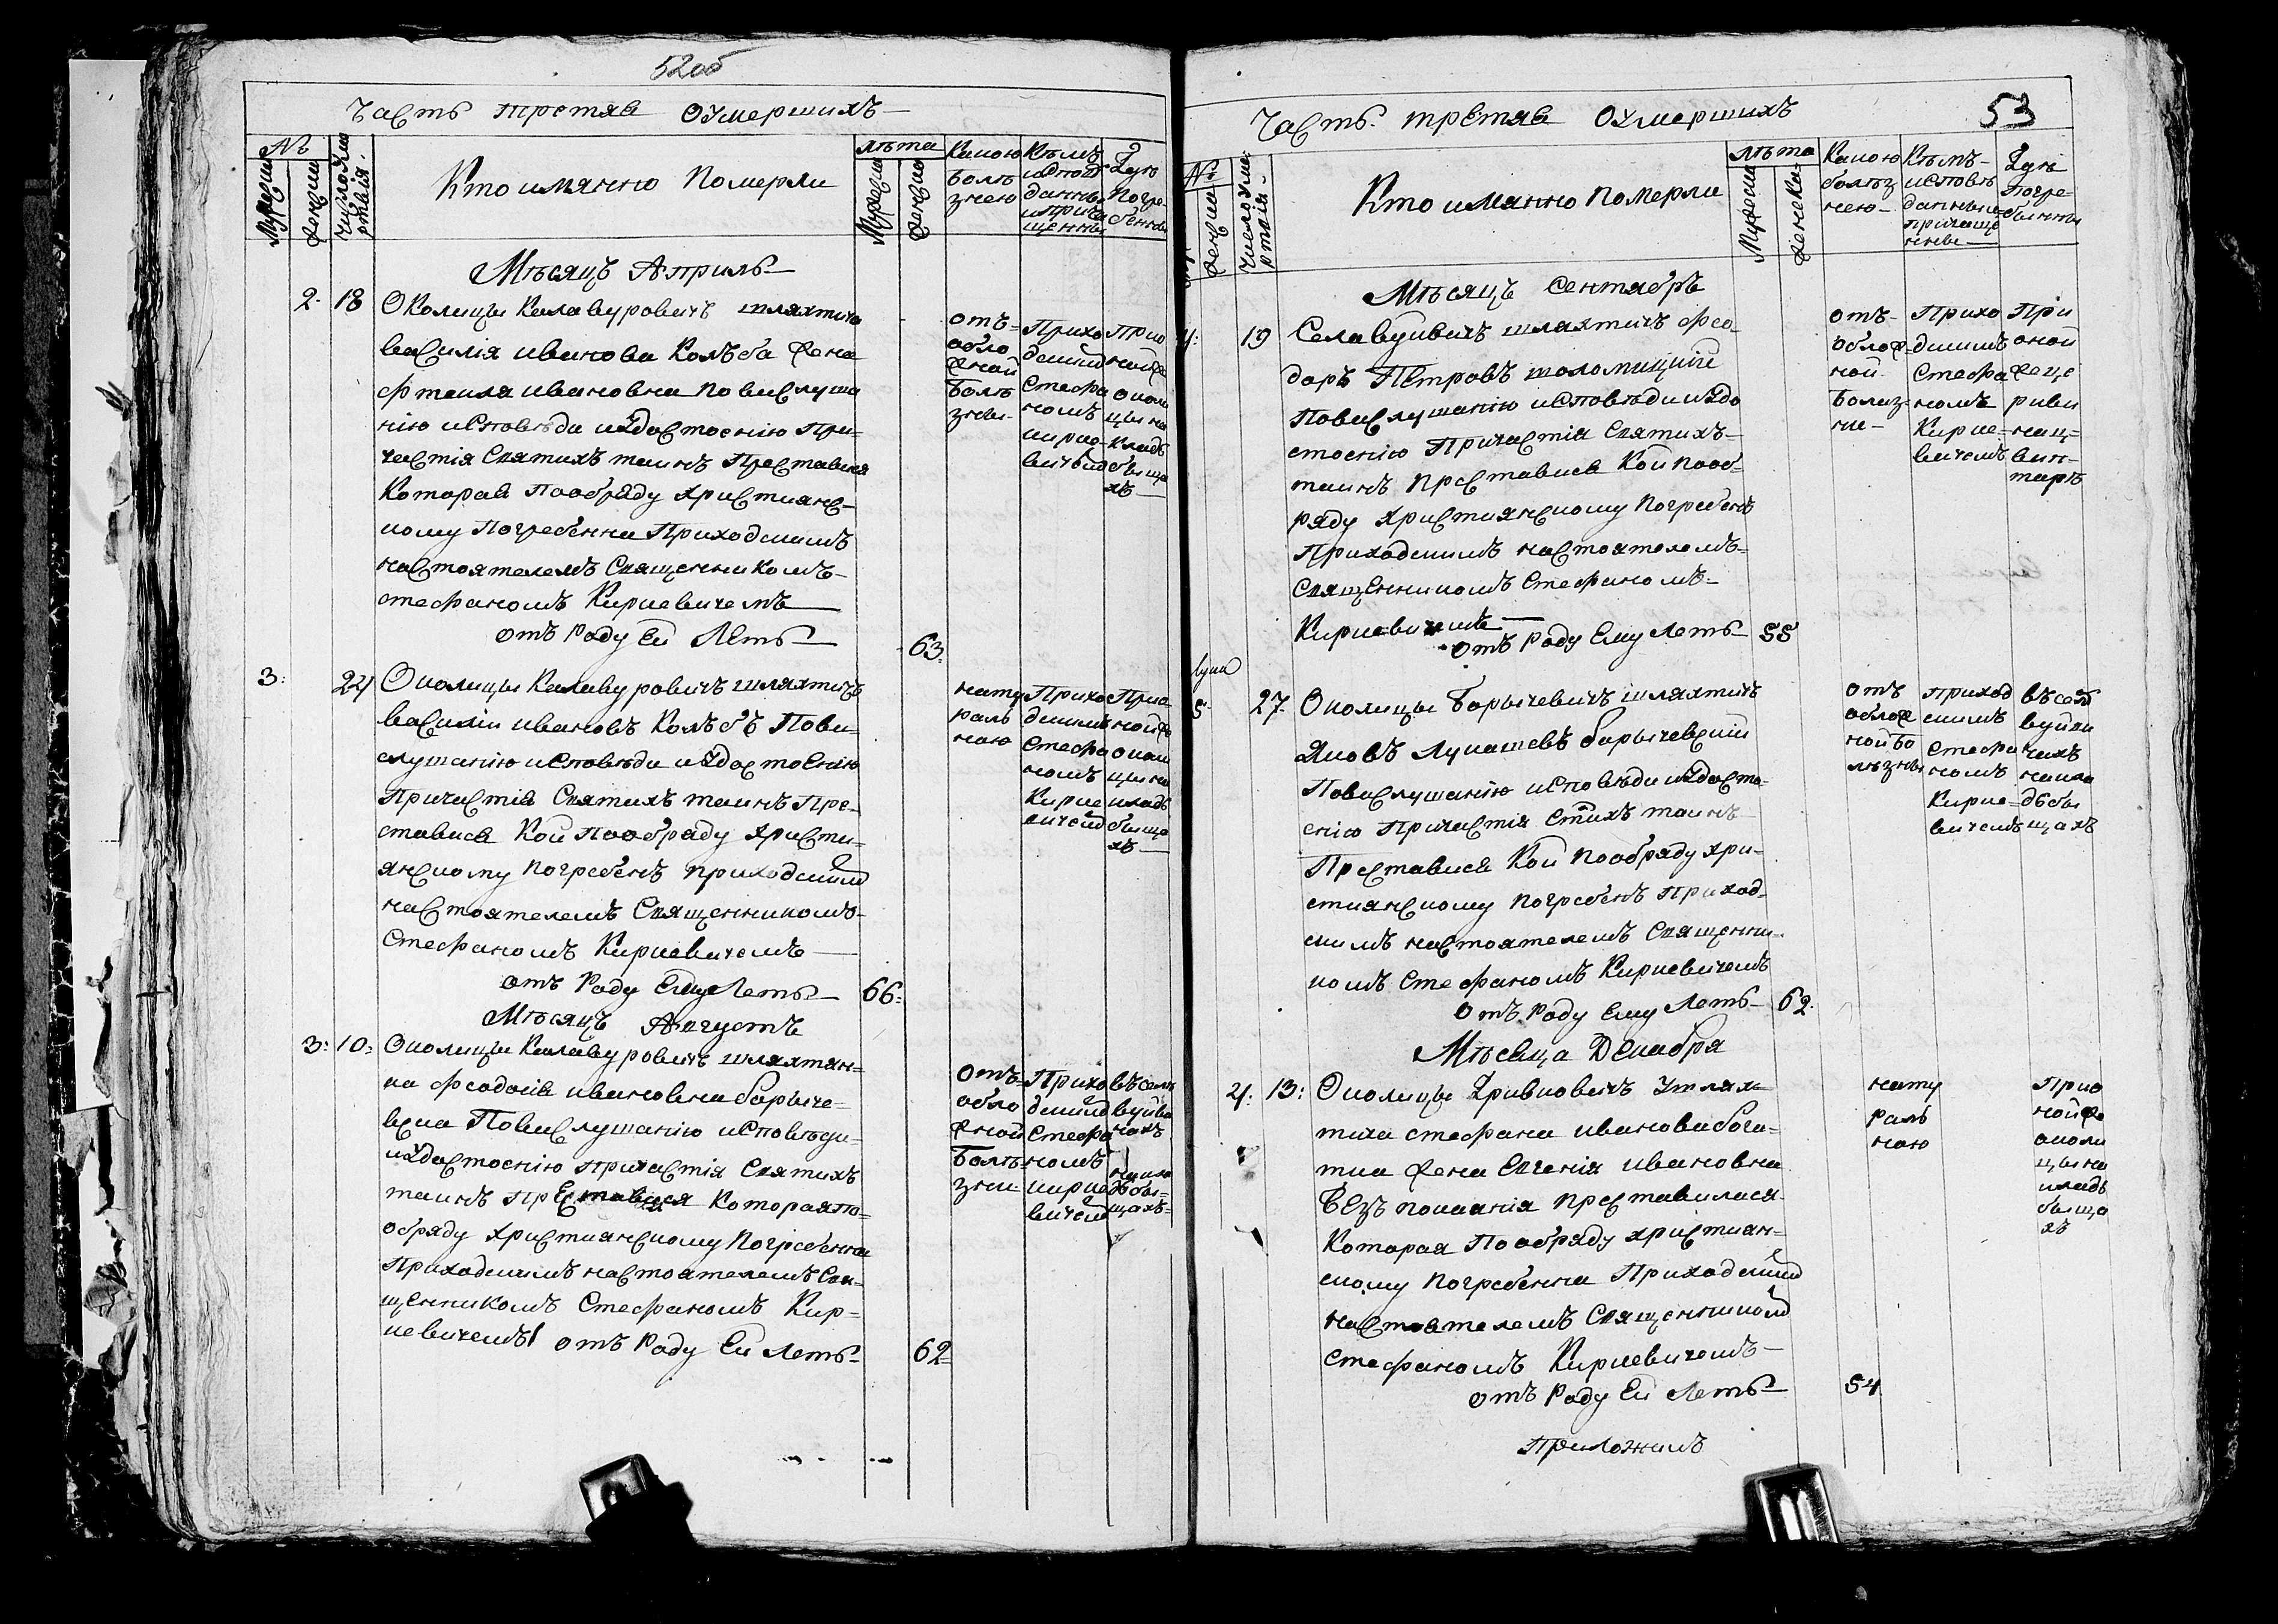 52об
Часть третяя оумершихъ
№
Мужески
Женски
Число умертвія
Кто имянно померли
лѣта
Мужески
Женски
Какою болѣзнею
Кѣмъ исповѣданны и причащенны
Гдѣ погребенны
Мѣсяцъ Априль
2. 18 Околицы Калавуровичъ шляхтича
василія иванова Колъба жена
ивановна по выслуша
нію исповѣди и удостоенію При-
частія Святихъ таинъ Преставися
Которая Пообряду христианс-
кому Погребенна Приходскимъ
настоятелемъ Священникомъ
стефаномъ Кирkевичемъ
отъ Роду Ей Летъ 63.
отъ обложной болѣзны
Приходскимъ Стефаномъ кирkевичемъ
При оной же околицы на кладбыщахъ
3: 24 Околицы Калавуровичъ шляхтичъ
василіи ивановъ Колъбъ Повы-
слушанію исповѣди и удостоенію
Причастія Святихъ таинъ Пре-
ставися Кой Пообряду христи-
янскому погребенъ приходскимъ
настоятелемъ Священникомъ
Стефаномъ Киркевичемъ
отъ Роду Ему Летъ 66.
натуральною
Приходскимъ Стефаномъ Киркевичемъ
При оной же околицы на кладбыщахъ
Мѣсяцъ Августъ
3: 10: Околицы Калавуровичъ шляхтян-
ка феодосія ивановна борыче-
вска Повыслушанію исповѣди
и удостоенію причастія Святихъ
таинъ Преставися Которая по-
обряду християнскому Погребенна
Приходскимъ настоятелемъ Свя-
щенникомъ Стефаномъ Кир-
кевичемъ отъ Роду Ей Летъ 62
отъ обложной болѣзни
Приходскимъ Стефаномъ киркевичемъ
въ селавуйвичахъ на кладбыщахъ
53
Часть третяя оумершихъ
№
Женски
Число умертвія
Кто имянно померли
лѣта
Мужески
Женски
Какою болѣзнею
Кѣмъ исповѣданны и причащенны
Гдѣ погребенны
Мѣсяцъ Сентябръ
4: 19 Селавуйвичъ шляхтичъ фео-
доръ Петровъ шоломицкій
Повыслушанію исповѣди и удо
стоенію Причастія Святихъ
таинъ преставися Кой пооб-
ряду християнскому погребенъ
Приходскимъ настоятелемъ
Священникомъ Стефаномъ
Киркевичемъ
отъ Роду Ему Летъ 55
отъ обложной болизни
Приходскимъ Стефаномъ Киркевичемъ
При оной же церкви на цвинтарѣ
5: 27. Околицы Борычевичъ шляхтичъ
Яковъ Лукашевъ борычевский
Повыслушанію исповѣди и удосто-
енію Причастія Стихъ таинъ
Преставися Кой пообряду хри-
стиянскому погребенъ Приход-
скимъ настоятелемъ Священни-
комъ Стефаномъ Киркевичемъ
отъ Роду Ему Летъ 62.
отъ обложной болѣзны
приходскимъ Стефаномъ Киркевичемъ
въ селавуйвичахъ на кладбыщахъ
Мѣсяца Декабря
4: 13: Околицы Гривковичъ Шлях-
тича стефана иванова бога-
тка жена Евгенія ивановна
Безъ покаянія преставилася
Которая Пообряду християн-
скому погребенна Приходскимъ
настоятелемъ Священникомъ
Стефаномъ Киркевичемъ
отъ Роду Ей Летъ 54
натуральною
При оной же околицы на кладбыщахъ